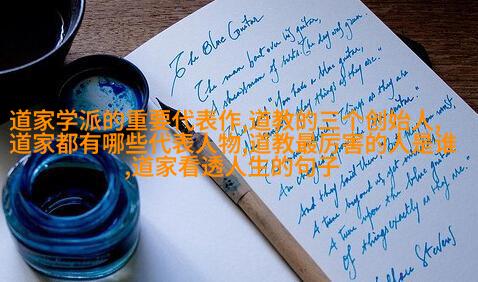 The Blue Guitar
The man bent over his guitar,
A shearsman of sorts. The day was green.
"You have a blue guitar,
things as they are."
Things as they are
道家学派的重要代表作,道教的三个创始人,
道家都有哪些代表人物,道教最厉害的人是谁
,道家看透人生的句子
And they said
A tune beyond us, yet ourselves,
A tune upon the blue guitar
Of things exactly as they are."
Wallace Stevens